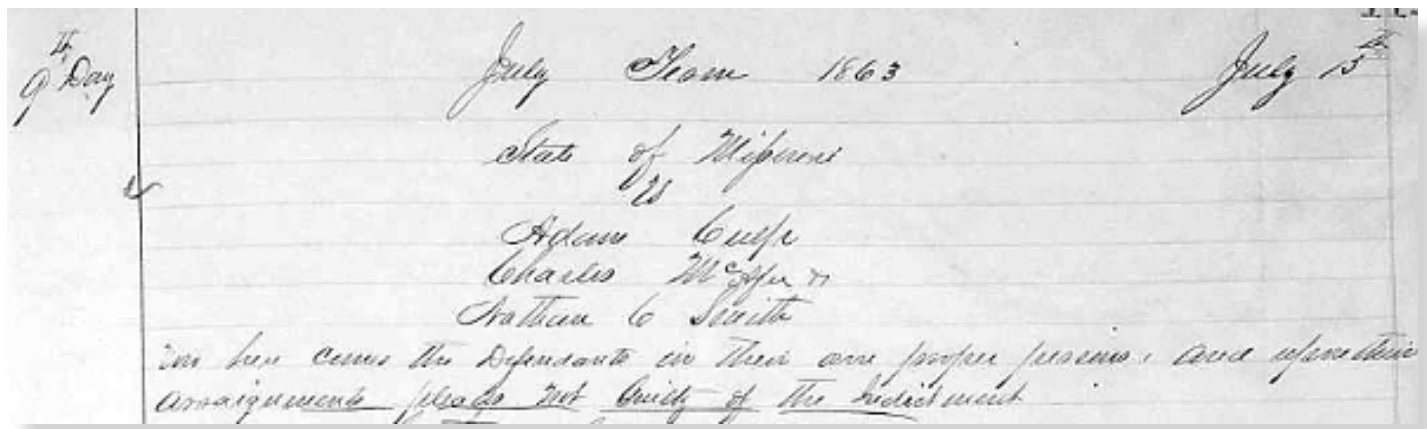 9th Day July Term 1863 July 15th
State of Missouri
vs
Adam Culp
Charles
Nathan C Smith
here comes the Defendants in their own proper persons, and upon their
arraignments pleads Not Guilty of the Indictment